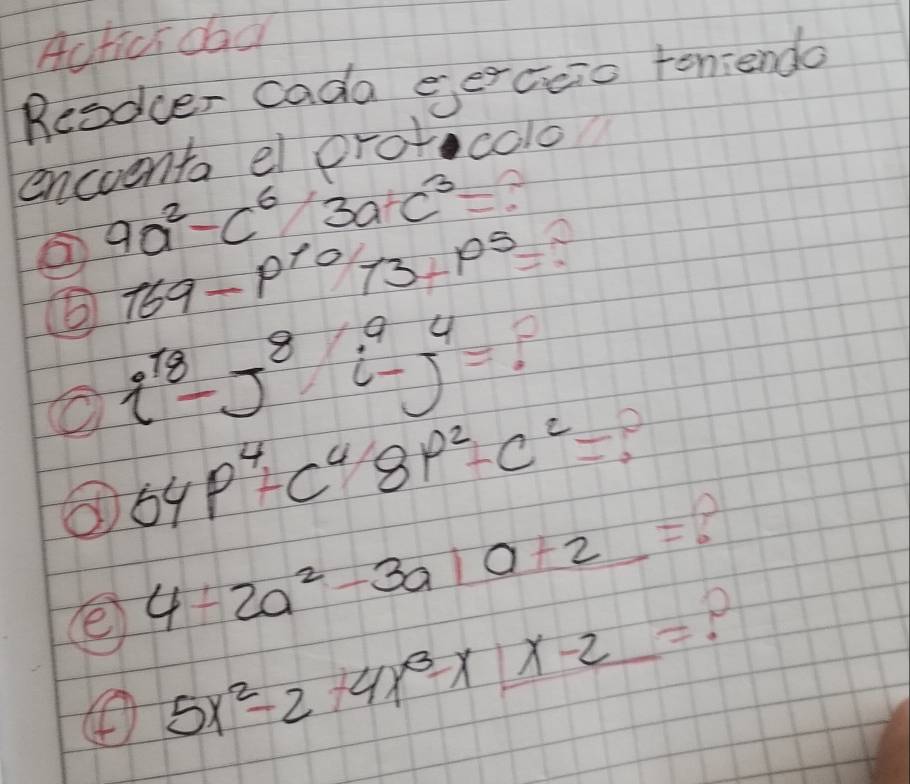 Actividad
Resolver cada ejercicio teniendo
encuenta el protocolo //
ⓐ 9a² - c⁶ / 3a + c³ = ?
ⓑ 169 - p¹⁰ / 13 + p⁵ = ?
ⓒ i¹⁸ - J⁸ / i⁹ - j⁴ = ?
ⓓ 64p⁴ + c⁴ / 8p² + c² = ?
ⓔ 4 + 2a² - 3a | a + 2 = ?
ⓕ 5x² - 2 + 4x³ - x | x - 2 = ?